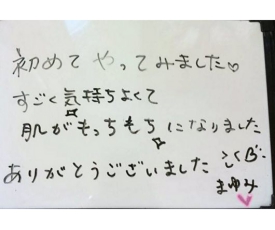 初めて やってみました♡
すごく気持ちよくて
肌がもっちもちになりました
ありがとうございました
まゆみ